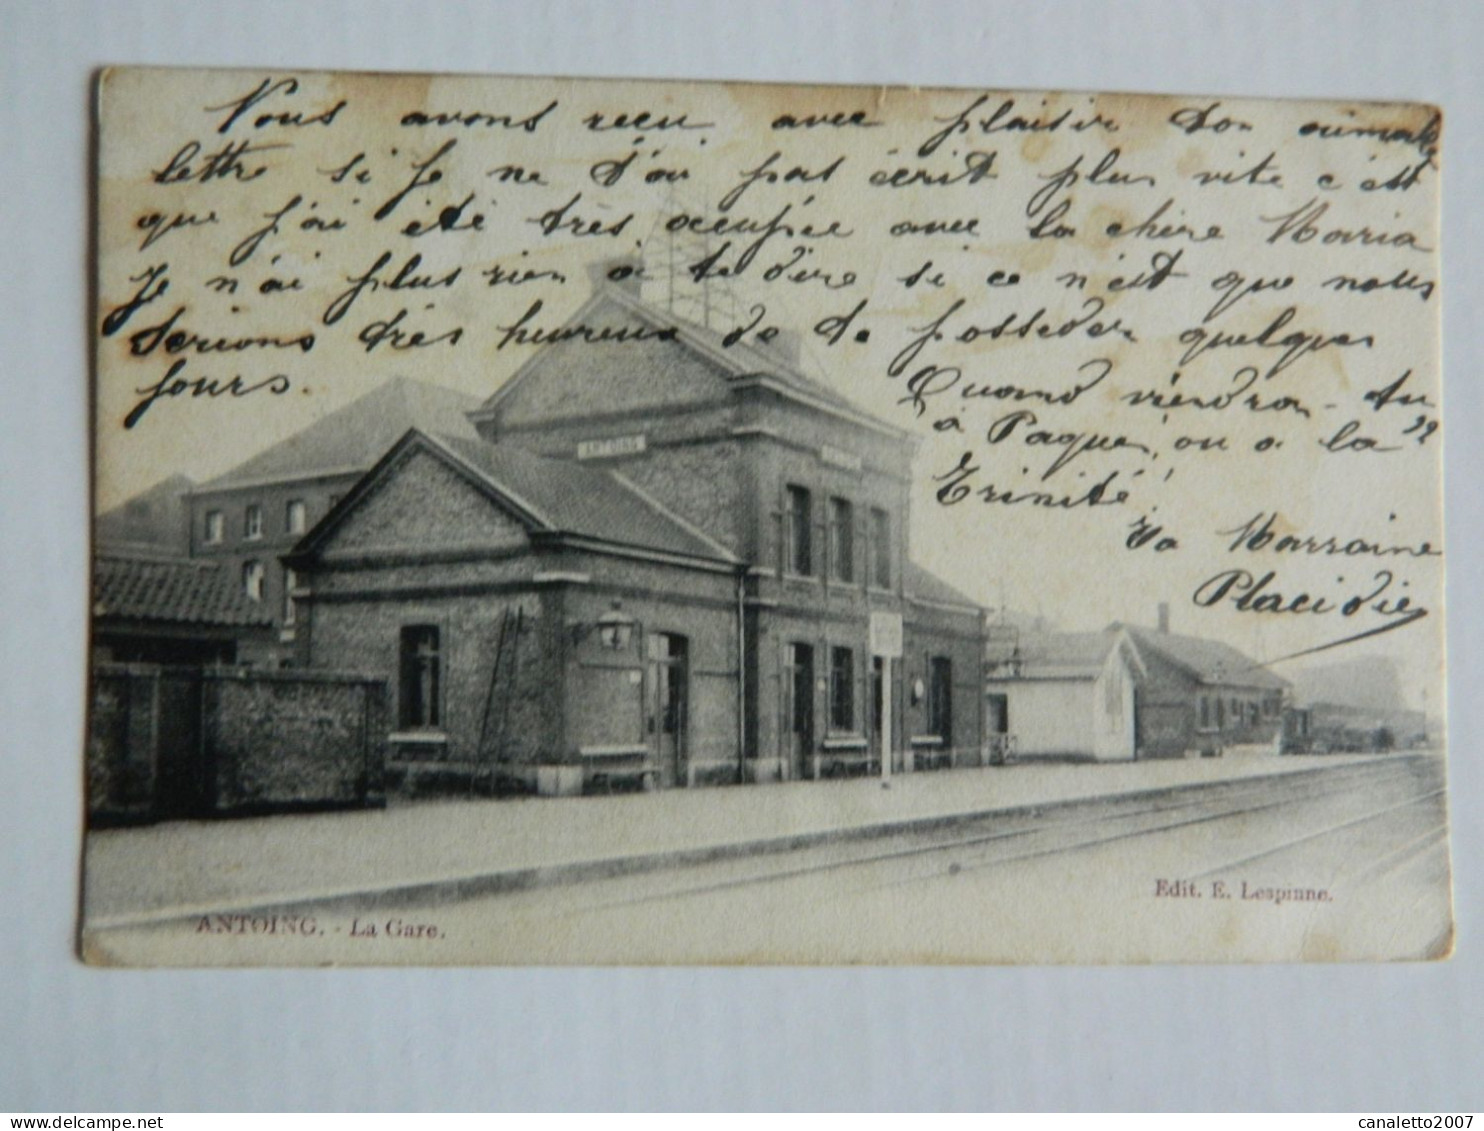 Nous avons reçu avec plaisir ton aimable
lettre si je ne t'ai pas écrit plus vite c'est
que j'ai été très occupée avec la chère Maria
Je n'ai plus rien a te dire si ce n'est que nous
serions très heureux de te posséder quelques
jours.
Quand viendras-tu
à Paques, ou a la
Trinité ?
Ta Marraine
Placidie
ANTOING
ANTOING. - La Gare.
Edit. E. Lespinne.
canaletto2007